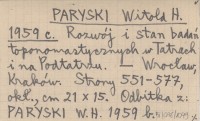 PARYSKI Witold H.
1959 c. Rozwój i stan badań
toponomastycznych w Tatrach
i na Podtatrzu. — Wrocław,
Kraków. Strony 551-577,
okł., cm 21 x 15. Odbitka z:
PARYSKI W.H. 1959 b.